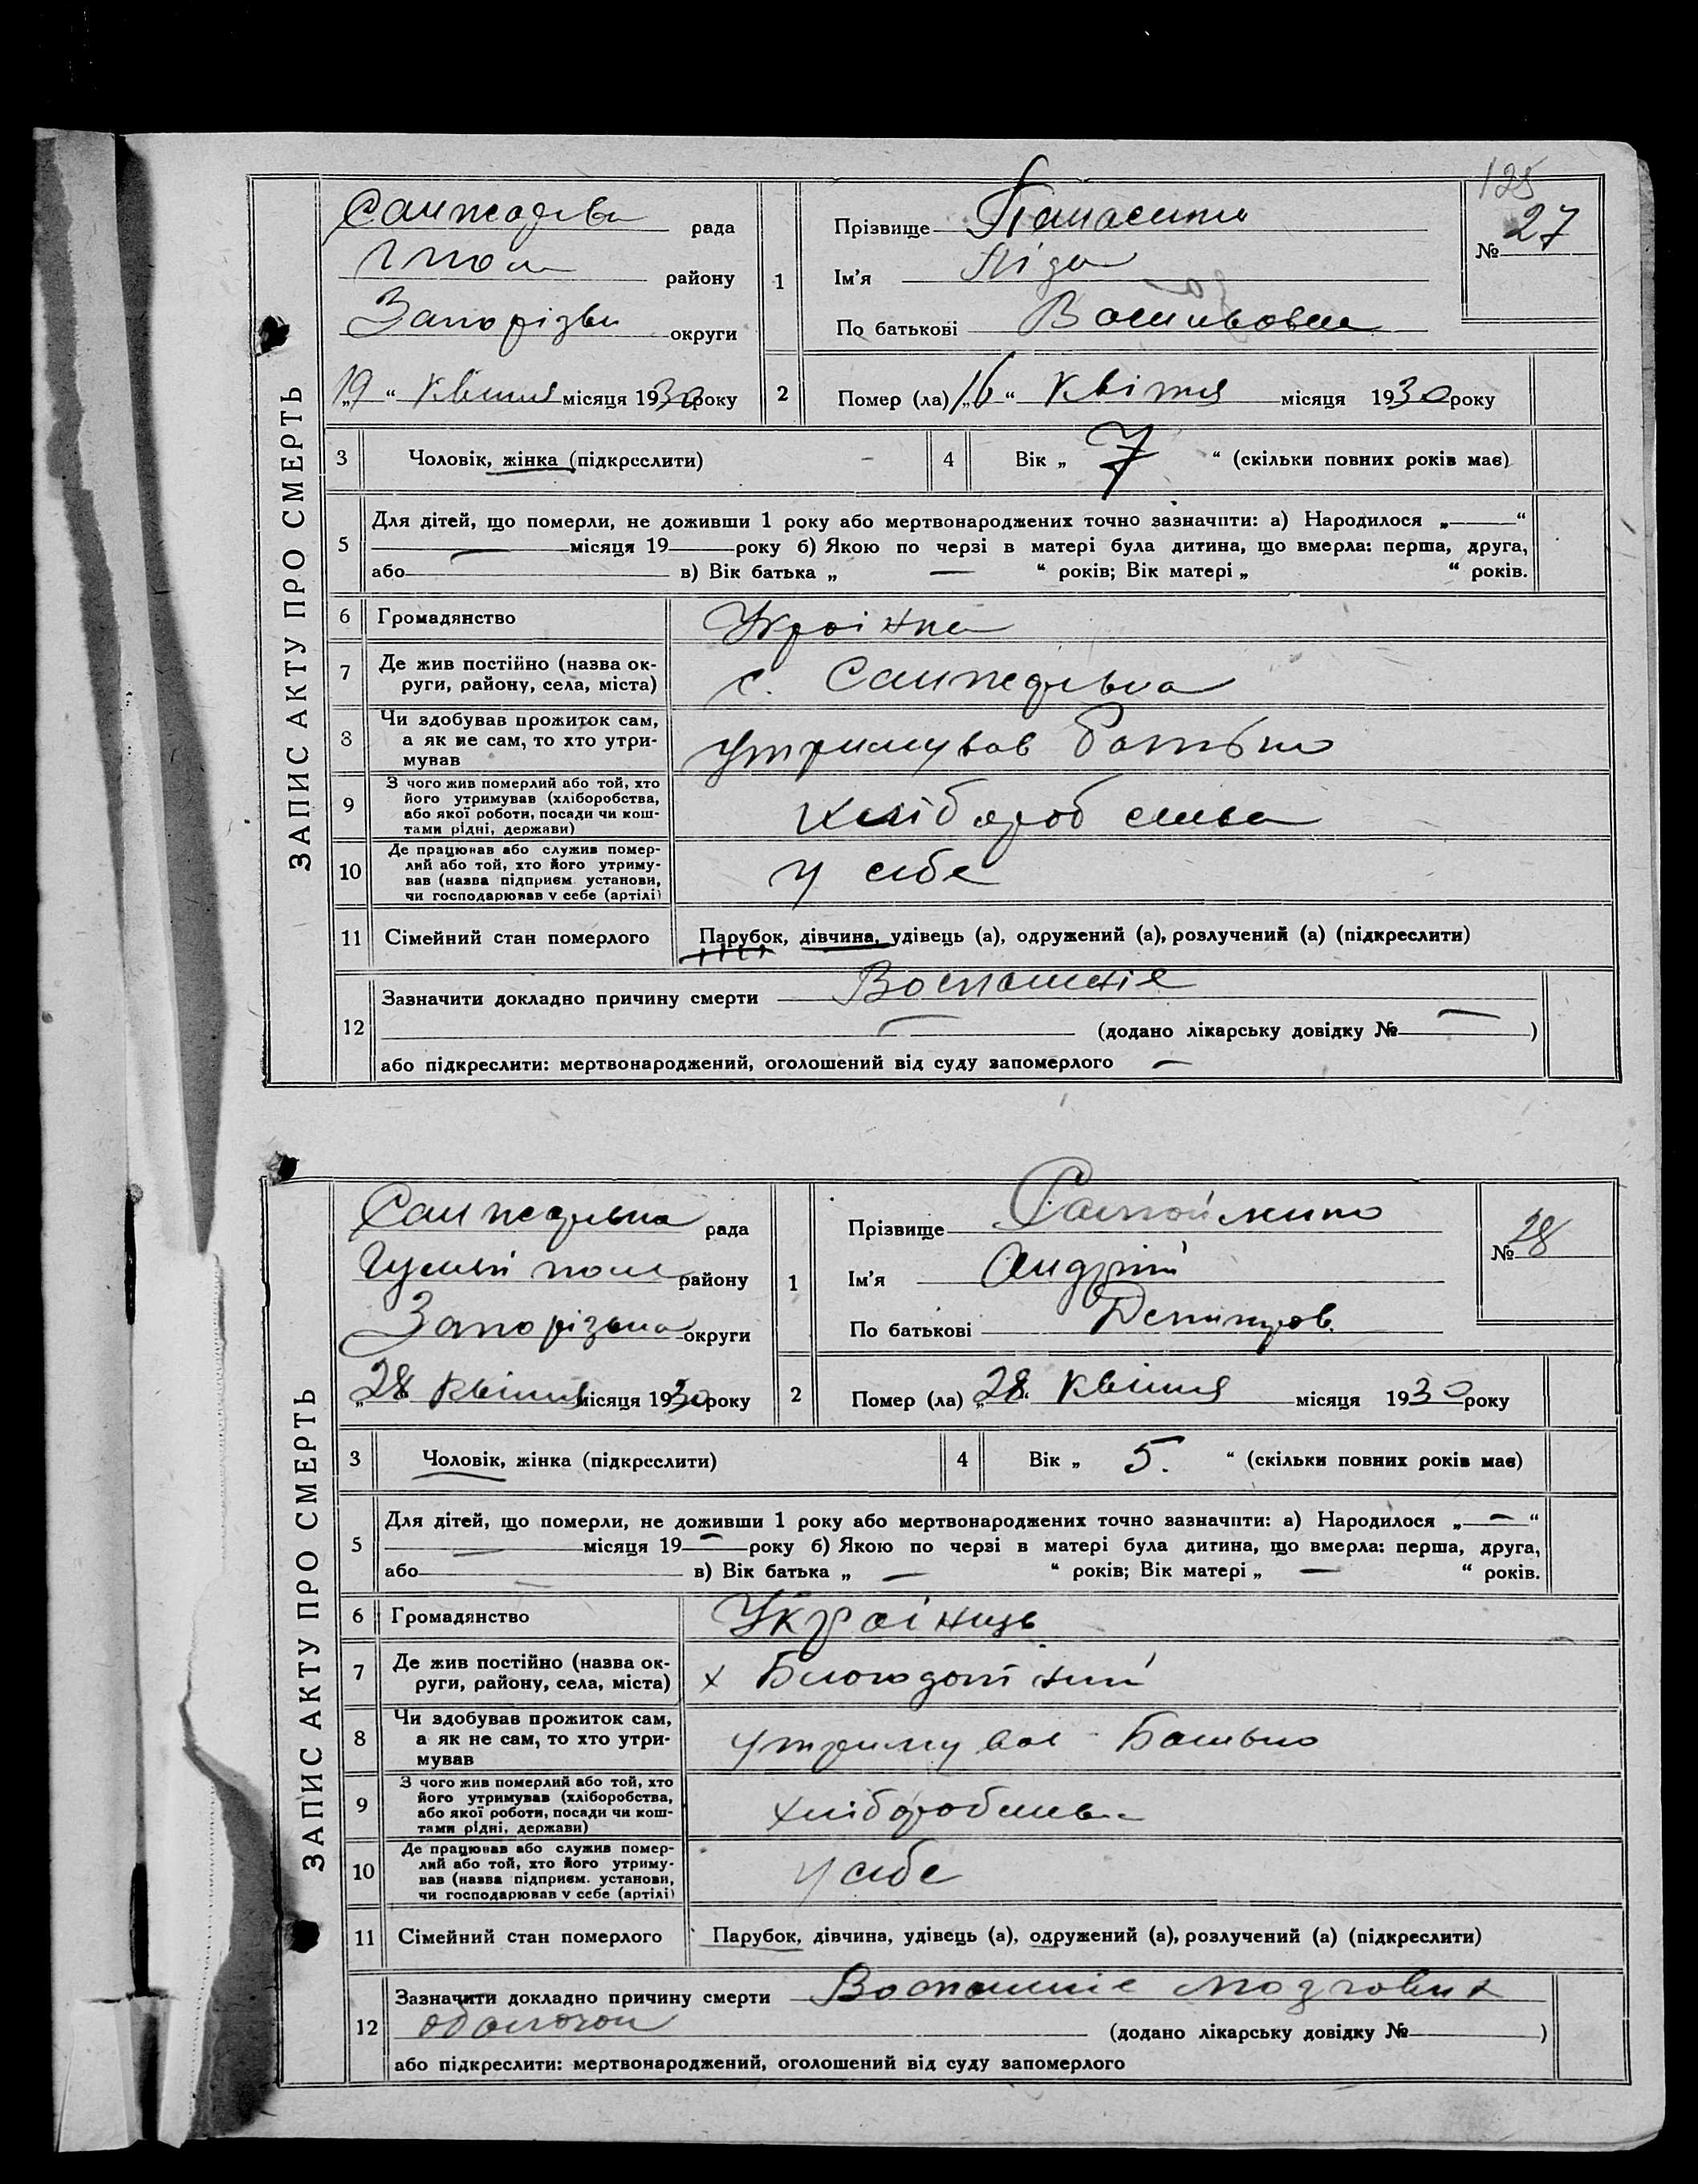 125
ЗАПИС АКТУ ПРО СМЕРТЬ
рада
району
Запорізьк округи
„19“ квітня місяця 1930 року
1
Прізвище
Ім'я Ліда
По батькові Васильовна
№ 27
2
Помер (ла) „16“ квітня місяця 1930 року
3 Чоловік, жінка (підкреслити)
4 Вік „ 7 “ (скільки повних років має)
5 Для дітей, що померли, не доживши 1 року або мертвонароджених точно зазначити: а) Народилося „—“
— місяця 19 року б) Якою по черзі в матері була дитина, що вмерла: перша, друга,
або в) Вік батька „ — “ років; Вік матері „ “ років.
6 Громадянство Украінка
7 Де жив постійно (назва ок-
руги, району, села, міста)
с. Санжарівка
8 Чи здобував прожиток сам,
а як не сам, то хто утри-
мував
утримував батько
9 З чого жив померлий або той, хто
його утримував (хліборобства,
або якої роботи, посади чи кош-
тами рідні, держави)
хлібороб ства
10 Де працював або служив помер-
лий або той, хто його утриму-
вав (назва підприєм. установи,
чи господарював у себе (артілі)
у себе
11 Сімейний стан померлого Парубок, дівчина, удівець (а), одружений (а), розлучений (а) (підкреслити)
12 Зазначити докладно причину смерти Воспаленіе
— (додано лікарську довідку № — )
або підкреслити: мертвонароджений, оголошений від суду запомерлого —
ЗАПИС АКТУ ПРО СМЕРТЬ
Санжарівка рада
Гуляй поле району
Запорізька округи
„28 квітня місяця 1930 року
1
Прізвище
Ім'я Андрій
По батькові
№ 28
2
Помер (ла) „28“ квітня місяця 1930 року
3 Чоловік, жінка (підкреслити)
4 Вік „ 5. “ (скільки повних років має)
5 Для дітей, що померли, не доживши 1 року або мертвонароджених точно зазначити: а) Народилося „—“
— місяця 19— року б) Якою по черзі в матері була дитина, що вмерла: перша, друга,
або — в) Вік батька „ — “ років; Вік матері „ — “ років.
6 Громадянство Украінець
7 Де жив постійно (назва ок-
руги, району, села, міста)
х
8 Чи здобував прожиток сам,
а як не сам, то хто утри-
мував
утримував Батько
9 З чого жив померлий або той, хто
його утримував (хліборобства,
або якої роботи, посади чи кош-
тами рідні, держави)
хліборобства
10 Де працював або служив помер-
лий або той, хто його утриму-
вав (назва підприєм. установи,
чи господарював у себе (артілі)
у себе
11 Сімейний стан померлого Парубок, дівчина, удівець (а), одружений (а), розлучений (а) (підкреслити)
12 Зазначити докладно причину смерти Воспаленіе мозгових
оболочок (додано лікарську довідку № )
або підкреслити: мертвонароджений, оголошений від суду запомерлого